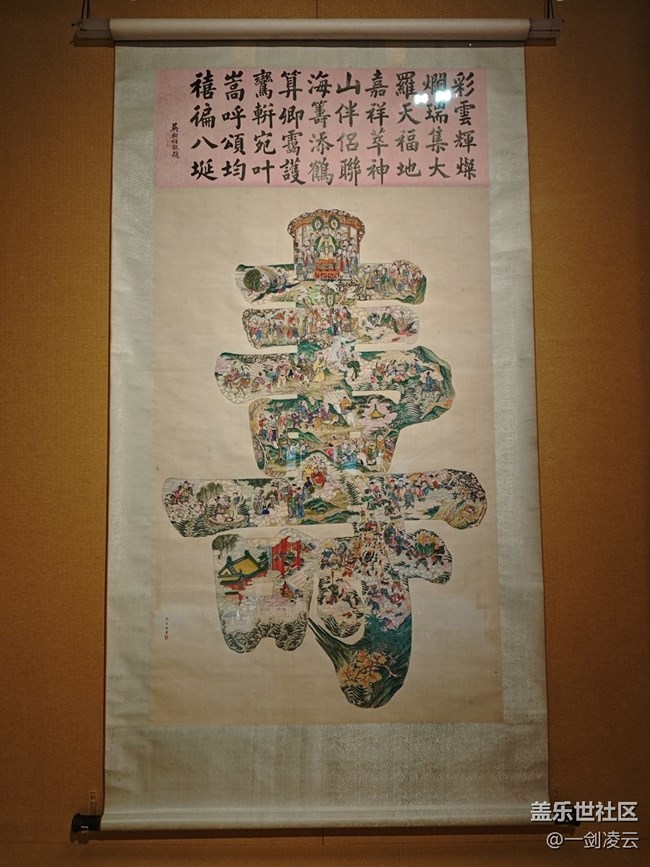 彩雲輝燦
爛瑞集大
羅天福地
嘉祥萃神
山伴侶聯
海籌添鶴
算卿靄護
鸞軿宛叶
嵩呼頌均
禧徧八埏
吳樹梅敬題
壽
盖乐世社区
@一剑凌云